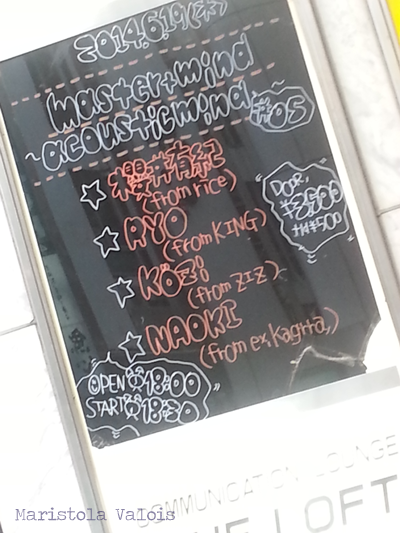 2014.6.19(木)
master+mind
~acousticmind~
#05
☆櫻井有紀
(from rice)
☆RYO
(from KING)
☆KöZi
(from ZIZ)
☆NAOKI
(from ex.Kagrra,)
DOOR.
¥3,500
+1D¥500
OPEN 18:00
START 18:30
COMMUNICATION LOUNGE
LOFT
Maristola Valois